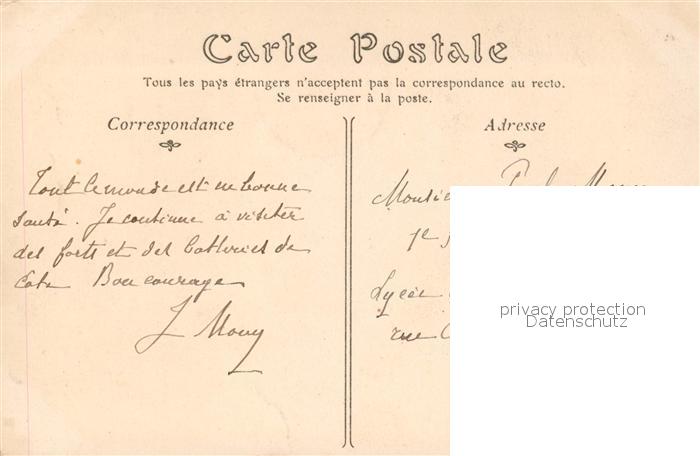 Carte Postale
Tous les pays étrangers n'acceptent pas la correspondance au recto.
Se renseigner à la poste.
Correspondance
Tout le monde est en bonne
santé. Je continue à visiter
des forts et des batteries de
Cote Bon courage
J Mouy
Adresse
Monsie
1e
Lycée
rue
privacy protection
Datenschutz